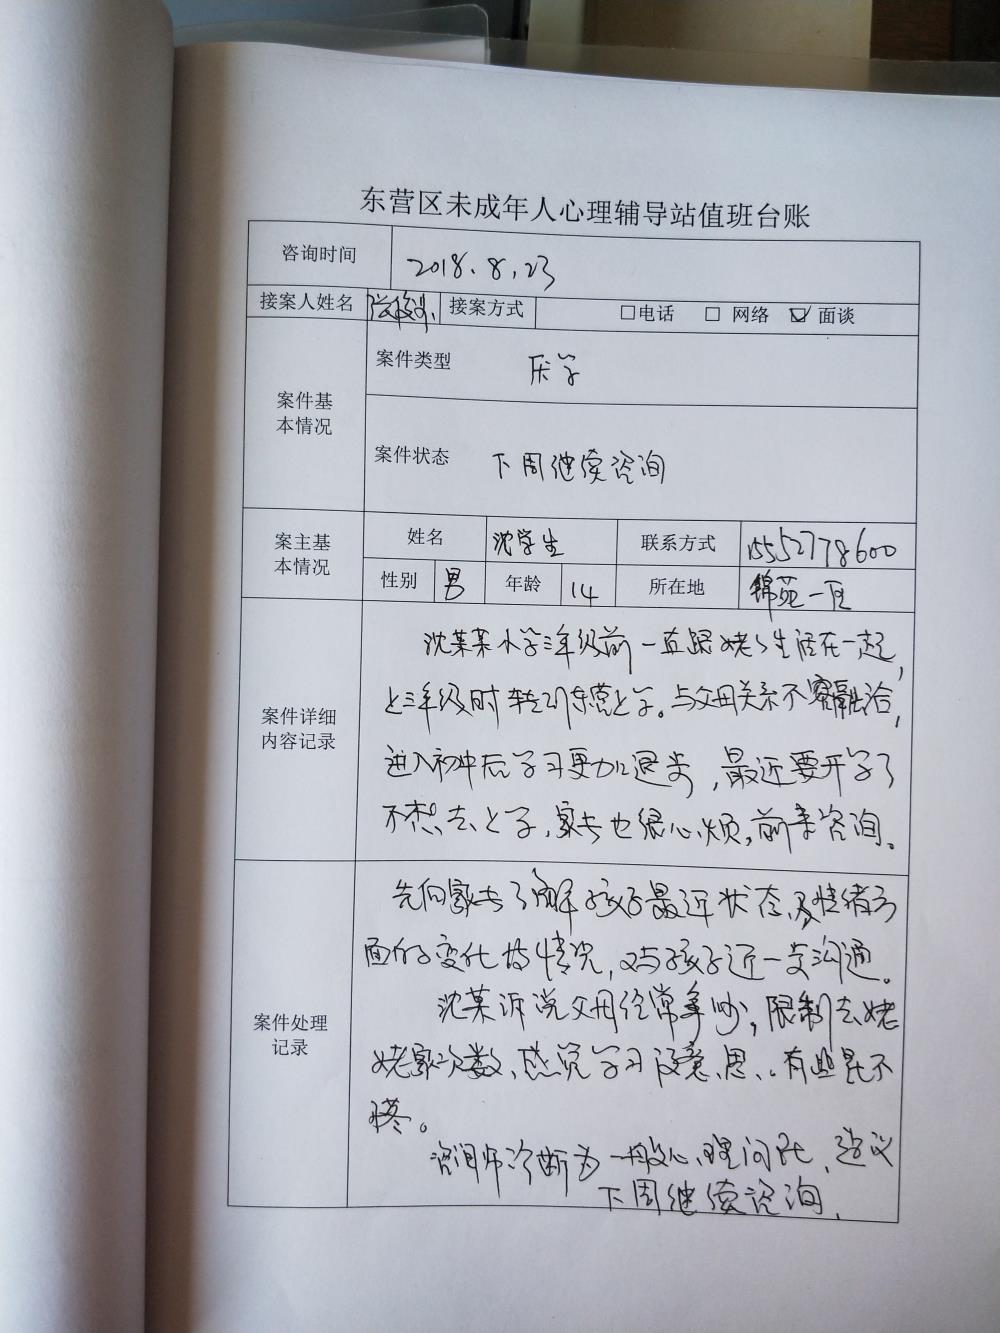 东营区未成年人心理辅导站值班台账
咨询时间 2018.8.23
接案人姓名 接案方式 □电话 □ 网络 ☑ 面谈
案件基本情况
案件类型 厌学
案件状态 下周继续咨询
案主基本情况
姓名 沈学生 联系方式 15552778600
性别 男 年龄 14 所在地 锦苑一区
案件详细内容记录
沈某某小学三年级前一直跟姥姥生活在一起,
上三年级时转到东营上学。与父母关系不融洽,
进入初中后学习更加退步,最近要开学了
不想去上学,家长也很心烦,前来咨询。
案件处理记录
先向家长了解孩子最近状态及情绪方
面的变化情况,又与孩子近一步沟通。
沈某诉说父母经常争吵,限制去姥
姥家次数、感觉学习没意思。有些
咨询师诊断为一般心理问题,建议
下周继续咨询.